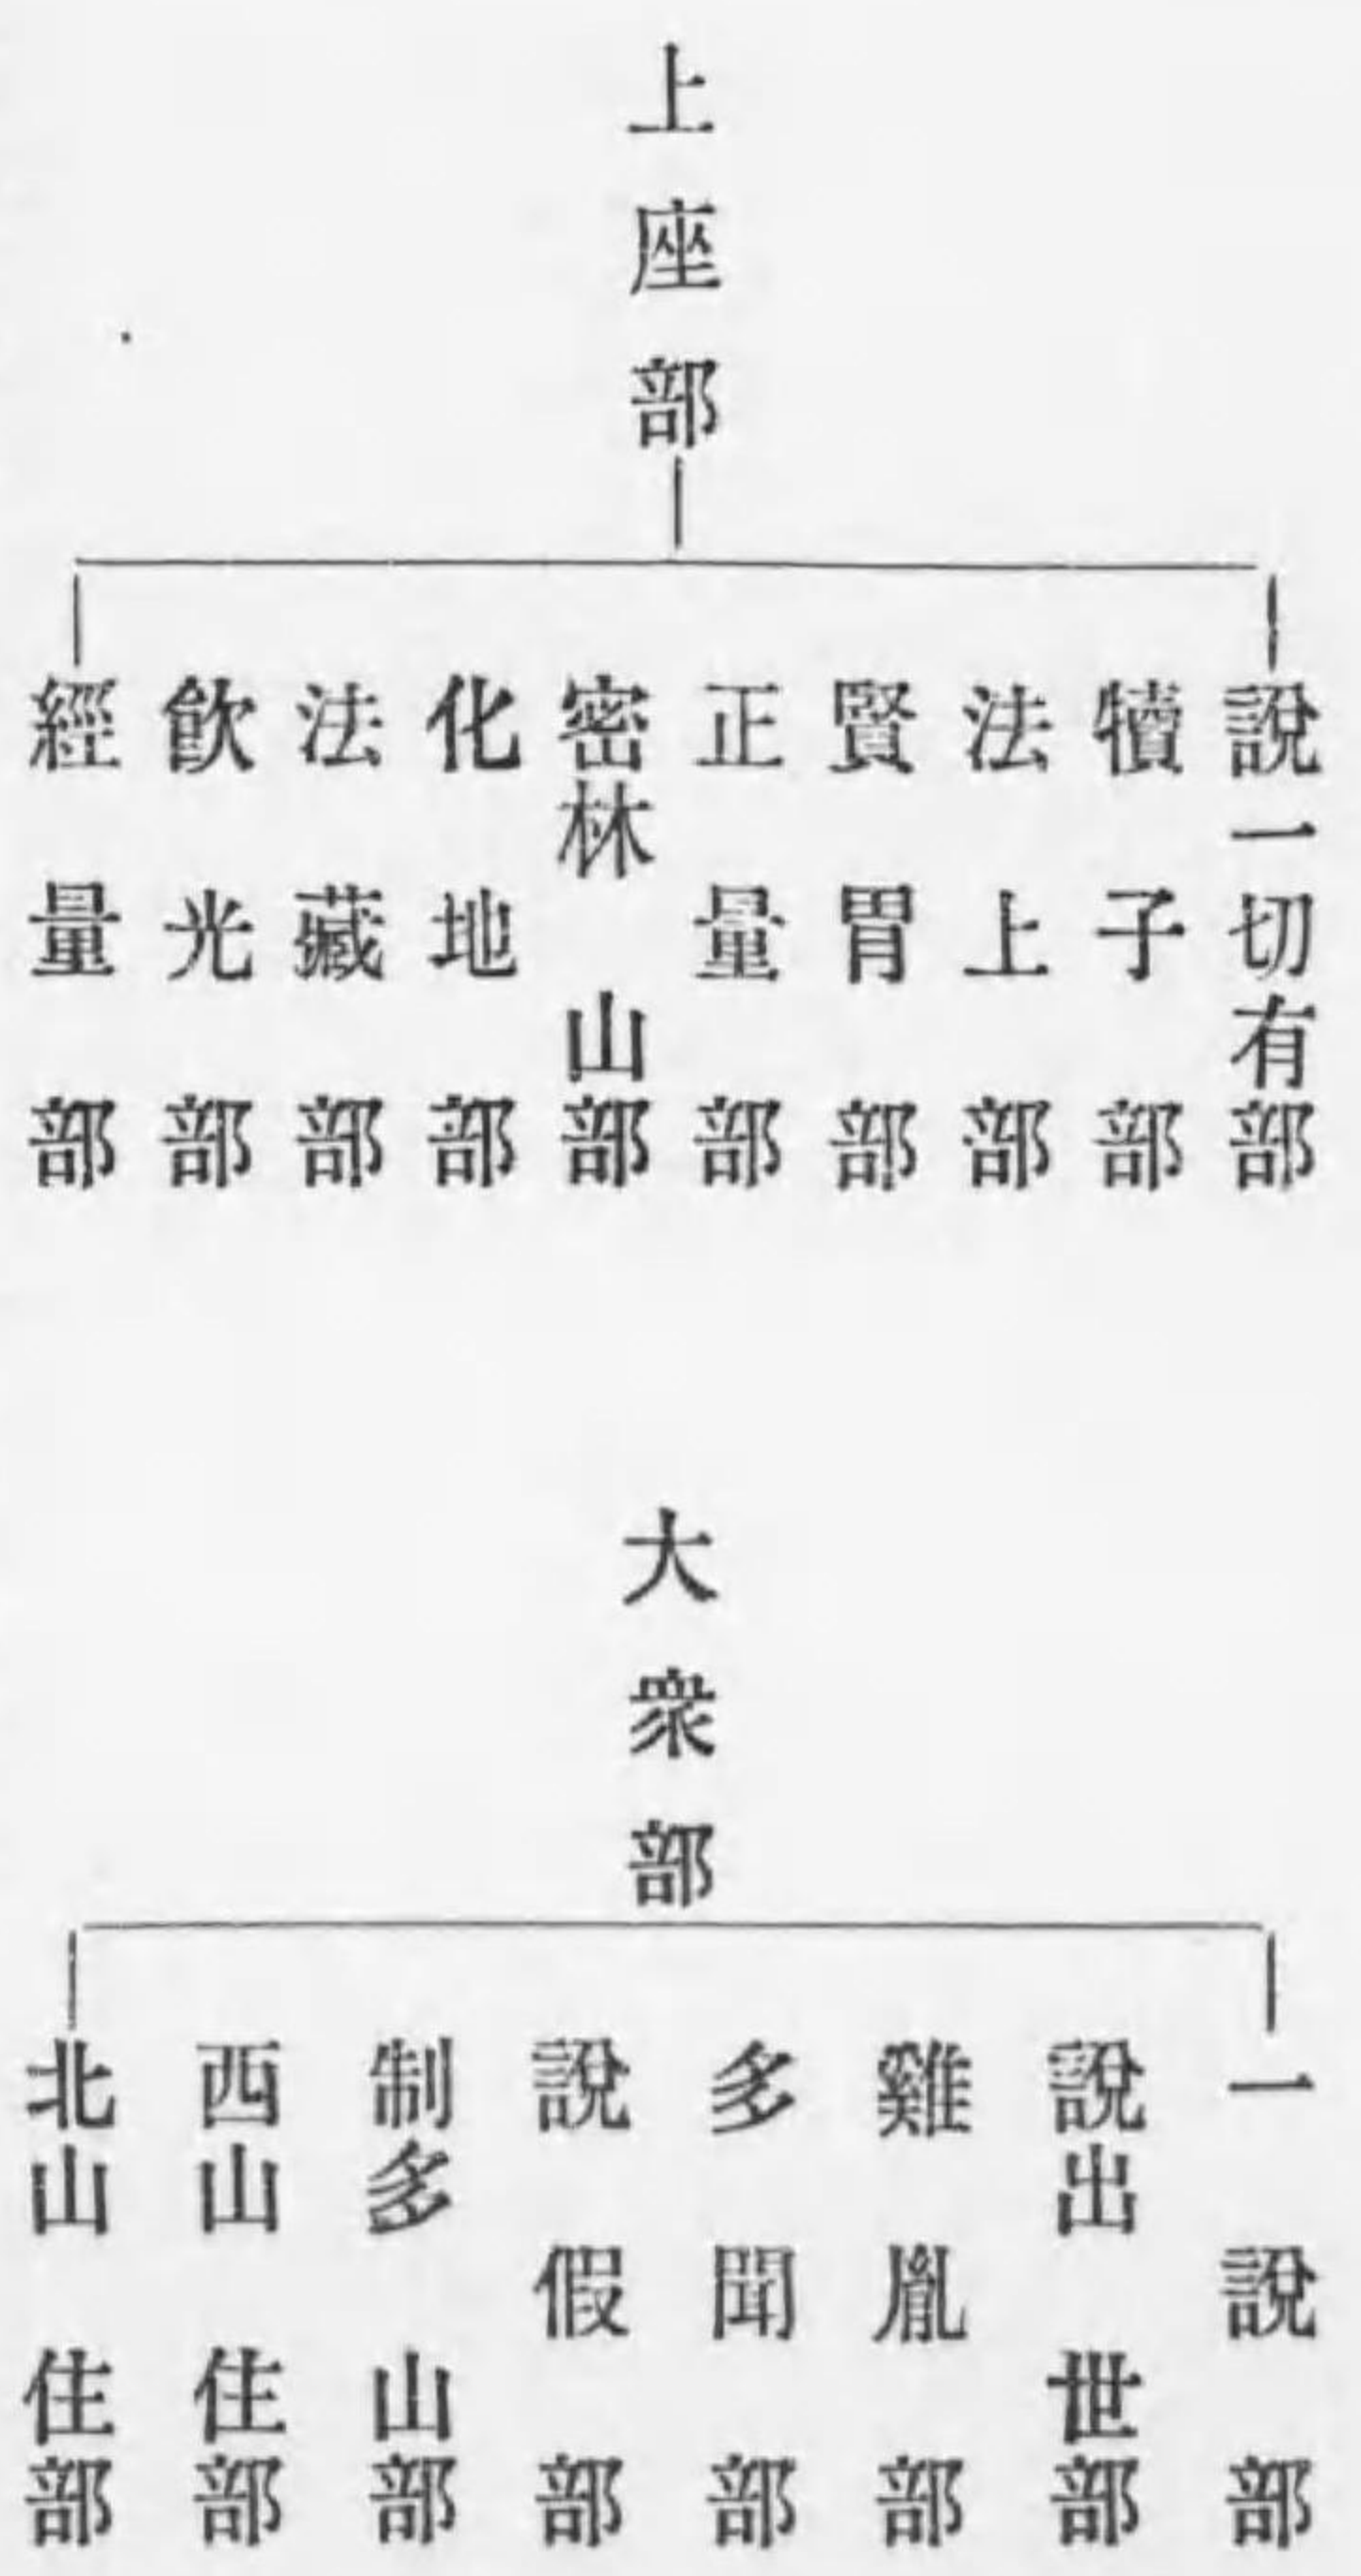 上座部
說一切有部
犢子部
法上部
賢胃部
正量部
密林山部
化地部
法藏部
飮光部
經量部
大衆部
一說部
說出世部
雞胤部
多聞部
說假部
制多山部
西山住部
北山住部